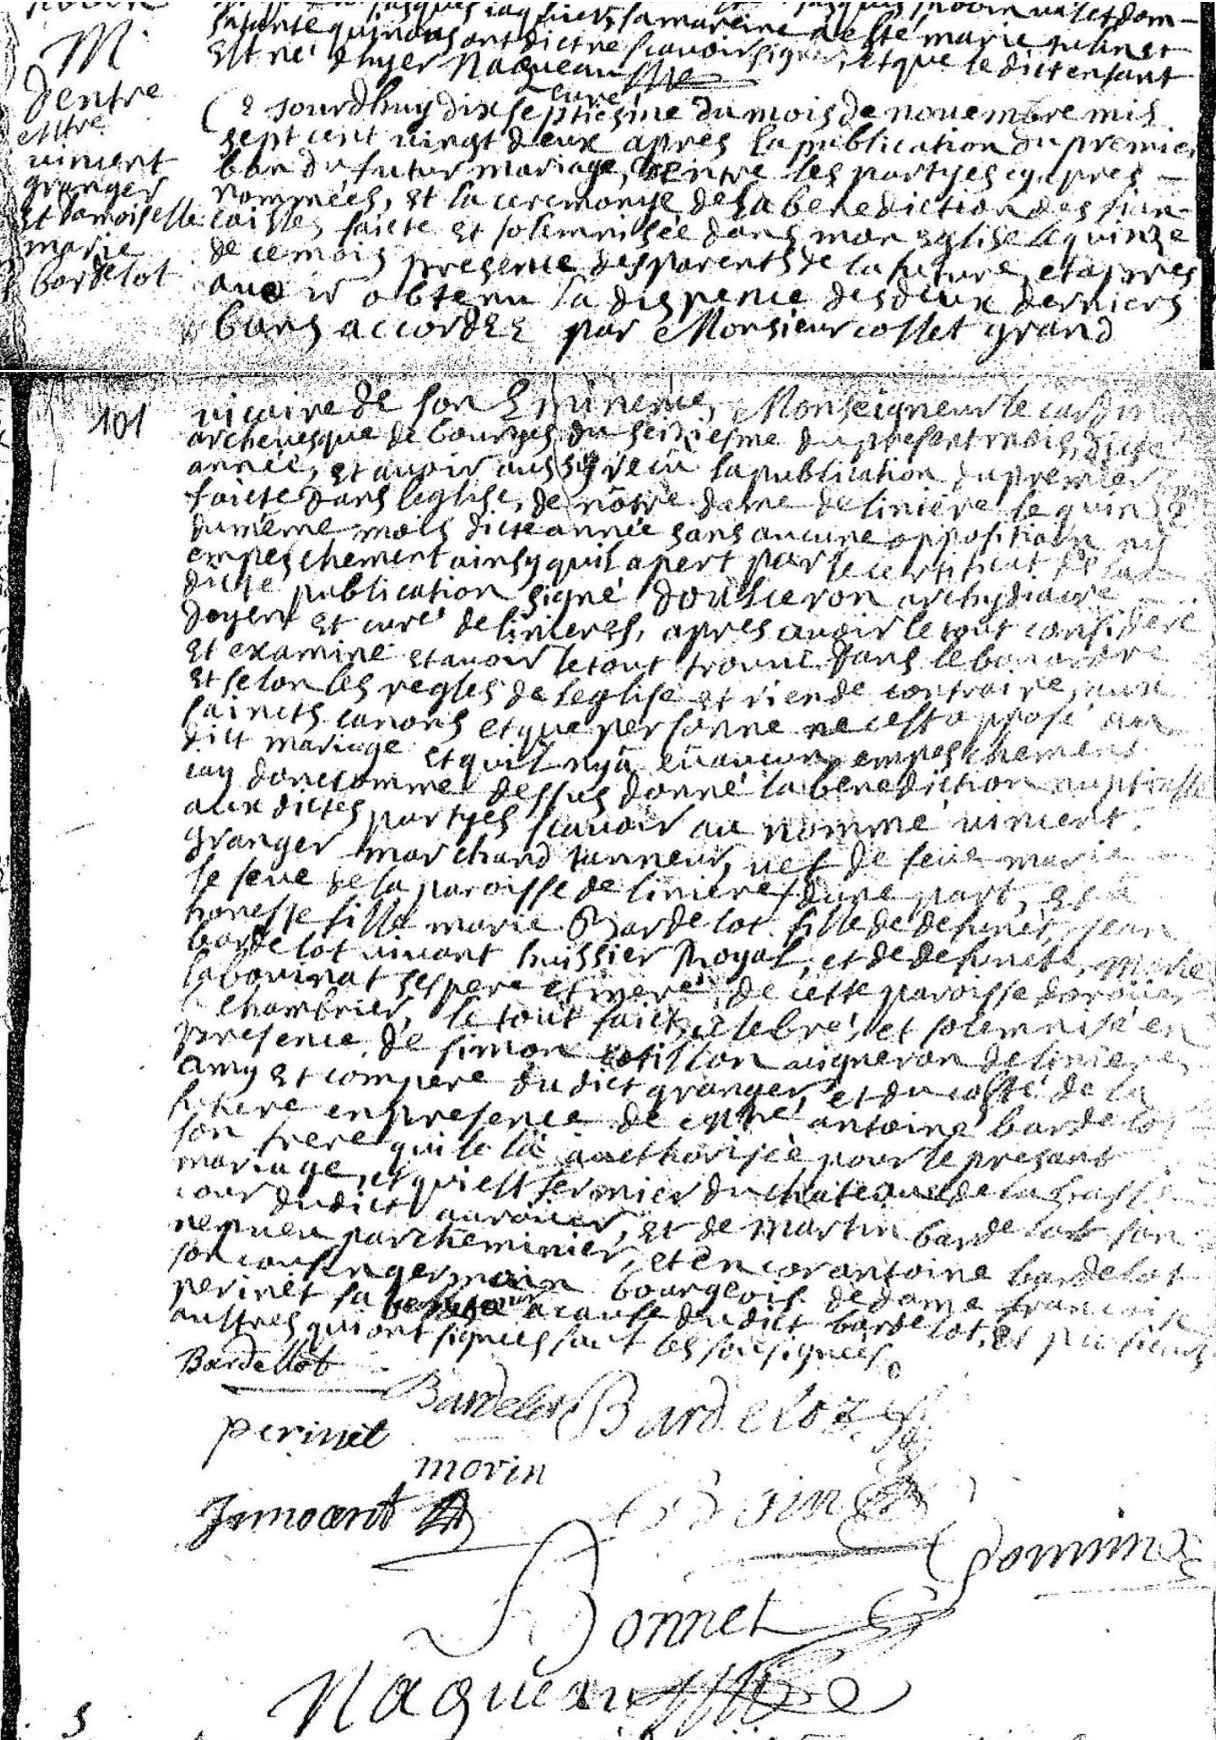 M.
dentre
entre
vincent
granger
Et damoiselle
marie
bardelot
est né d'hyer Naqueau et que le dict enfant
curé
Ejourdhuy dix septiesme du mois de novembre mil
sept cent vingt deux apres la publication du premier
ban du futur mariage, dentre les partyes cy apres
nommées, et la ceremonye de la benediction des fian
cailles faicte et solemnisée dans mon Eglise le quinze
de ce mois presence des parents de la future, et apres
avoir obtenu la dispence des deux derniers
bans accordEE par Monsieur collet grand
101
vicaire de son Eminence, Monseigneur le cardin
archevesque de bourges du seiziesme du present mois, dicte
année, et avoir aussy reçu la publication du premier
faicte dans leglise, de nôtre dame de liniere le quinze
du même mois dicte année sans aucune opposition ny
empeschement ainsy quil apert par le certificat de la
dicte publication signé doulceron archydiacre
doyen et curé de linieres, apres avoir le tout considere
et examiné et avoir le tout trouvé dans le bon ordre
et selon les regles de leglise et rien de contraire, aux
saincts canons et que personne ne cest oposé au
dict mariage et quil nya eü aucun empeschement
iay donc comme dessus donné la benediction nuptialle
aux dictes partyes scavoir au nommé vincent
granger marchand tanneur, vef de feüe marie
le feve de la paroisse de liniere dune part, et a
honeste fille marie Bardelot fille de defunct Jean
bardelot vivant huissier Royal, et de defuncte, marie
labouinat ses pere et mere, de cette paroisse doroüer
chambrier, le tout faict celebré, et solemnisé en
presence de simon cotillon vigneron de liniere
amy et compere du dict granger, et du costé de la
future en presence de antoine bardelot
son frere qui le la authorisée pour le presant
mariage, et qui est fermier du chateau de la
cour dudict auroüer, et de martin bardelot son
nepveu parcheminier, et encor antoine bardelot
son cousin germain bourgeois de dame francoise
perinet sa a cause du dict bardelot, et plusieurs
aultres qui ont signées sauf les sousignées.
Bardellot
Bardelot
Bardelot
perinet
morin
Innocent
Bonnet
Naqueau
5